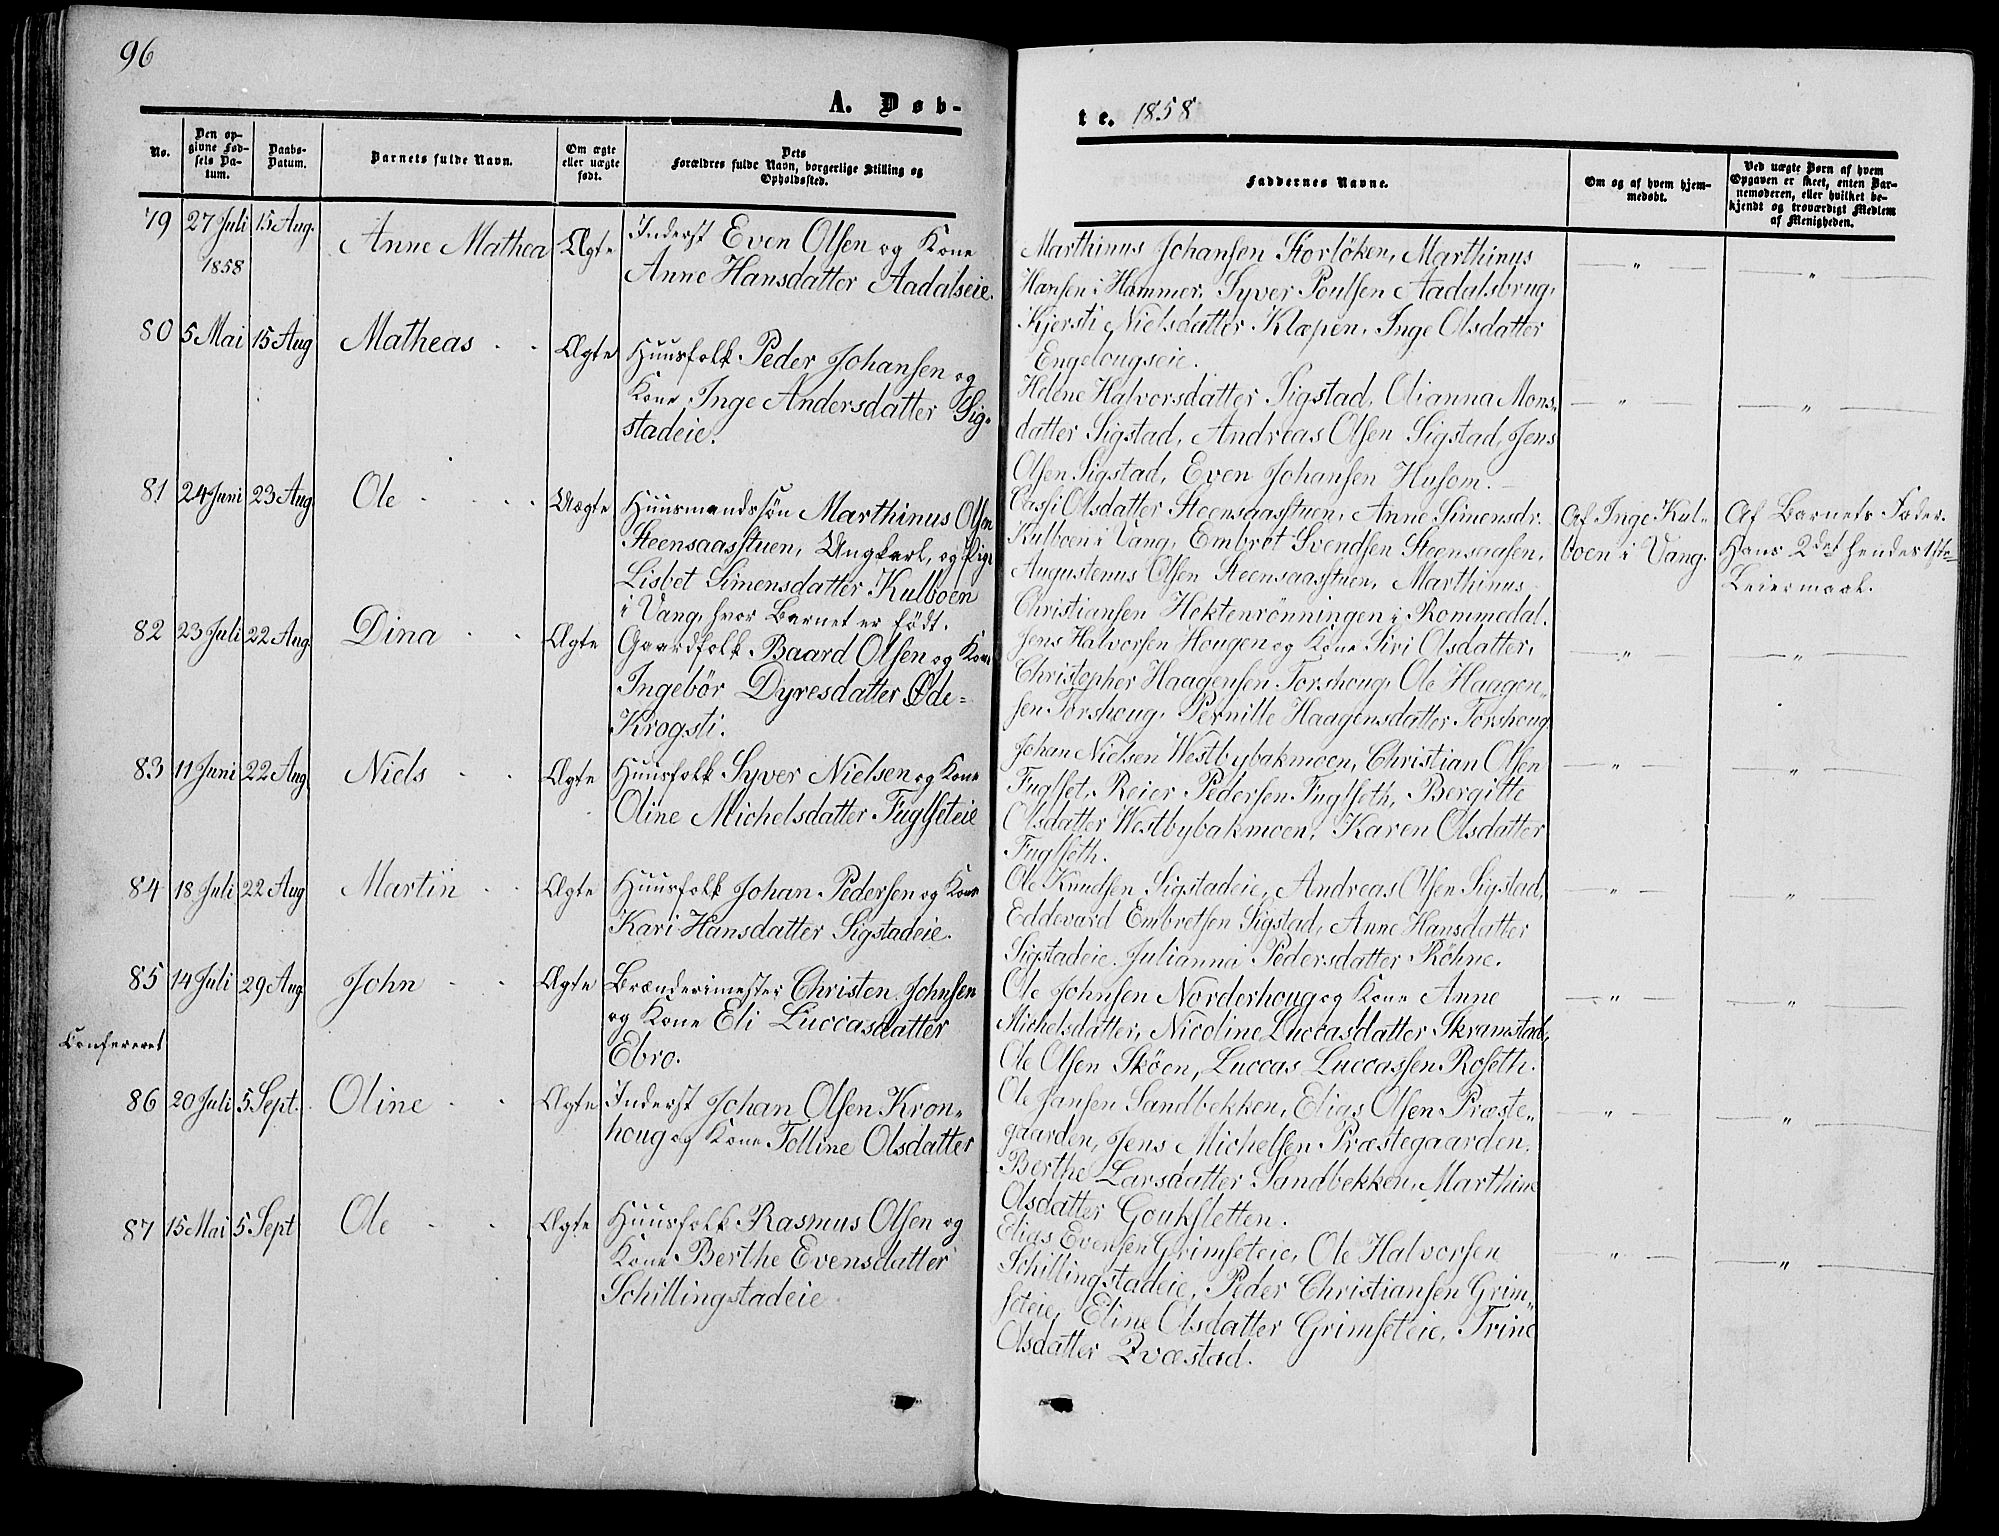 96
A. Døb-
No.
Den op-
givne Fød-
sels Da-
tum.
Daabs-
Datum.
Barnets fulde Navn.
Om ægte
eller uægte
født.
Dets
Forældres fulde Navn, borgerlige Stilling og
Opholdssted.
79 27 Juli 15 Aug. Anne Mathea Ægte Inderst Even Olsen og Kone
1858
Anne Hansdatter Aadalseie.
80 5 Mai 15 Aug Matheas - - Ægte Huusfolk Peder Johansen og
Kone Inge Andersdatter Sig-
stadeie.
81 24 Juni 23 Aug Ole - - - - Uægte Huusmandssön Marthinus Olsen
Steensaasstuen, Ungkarl, og Pige
Lisbet Simensdatter Kulboen
i Vang, hvor Barnet er födt.
82 23 Juli 22 Aug. Dina - - Ægte Gaardfolk Baard Olsen og Kone
Ingebör Dyresdatter Øde-
Krogsti.
83 11 Juni 22 Aug Niels - - Ægte Huusfolk Syver Nielsen og Kone
Oline Michelsdatter Fuglseteie
84 18 Juli 22 Aug Martin - - Ægte Huusfolk Johan Pedersen og Kone
Kari Hansdatter Sigstadeie.
85 14 Juli 29 Aug John - - Ægte Brænderimester Christen Johnsen
og Kone Eli Luccasdatter
Confereret
Ebro.
86 20 Juli 5 Sept. Oline - - Ægte Inderst Johan Olsen Kron-
houg og Kone Tolline Olsdatter
87 15 Mai 5 Sept Ole - - Ægte Huusfolk Rasmus Olsen og
Kone Berthe Evensdatter
Schillingstadeie
te. 1858
Faddernes Navne.
Om og af hvem hjem-
medøbt.
Ved uægte Børn af hvem
Opgaven er skeet, enten Bar-
nemoderen, eller hvilket be-
kjendt og troværdigt Medlem
af Menigheden.
Marthinus Johansen Storlöken, Marthinus — " — — " —
Hansen i Hammer, Syver Poulsen Aadalsbrug,
Kjersti Nielsdatter Klæpen, Inge Olsdatter
Engelougseie.
Helene Halvorsdatter Sigstad, Olianna Mons- — " — — " —
datter Sigstad, Andreas Olsen Sigstad, Jens
Olsen Sigstad, Even Johansen Husom. —
Cassi Olsdatter Steensaasstuen, Anne Simensdr. Af Inge Kul- Af Barnets Fader.
Kulboen i Vang, Embret Svendsen Steensaasen, boen i Vang. Hans 2det hendes 1ste
Augustenus Olsen Steensaasstuen, Marthinus Leiermaal.
Christiansen Hektenrönningen i Rommedal.
Jens Halvorsen Hougen og Kone Siri Olsdatter, — " — — " —
Christopher Haagensen Torshoug, Ole Haagen-
sen Torshoug, Pernille Haagensdatter Torshoug.
Johan Nielsen Westbybakmoen, Christian Olsen — " — — " —
Fuglset, Reier Pedersen Fuglseth, Bergitte
Olsdatter Westbybakmoen, Karen Olsdatter
Fuglseth.
Ole Knudsen Sigstadeie, Andreas Olsen Sigstad, — " — — " —
Eddevard Embretsen Sigstad, Anne Hansdatter
Sigstadeie, Julianna Pedersdatter Röhne.
Ole Johnsen Norderhoug og Kone Anne — " — — " —
Michelsdatter, Nicoline Luccasdatter Skramstad,
Ole Olsen Sköen, Luccas Luccassen Roseth.
Ole Jansen Sandbekken, Elias Olsen Præste- — " — — " —
gaarden, Jens Michelsen Præstegaarden.
Berthe Larsdatter Sandbekken, Marthine
Olsdatter Goukstetten.
Elias Evensen Grimseteie, Ole Halvorsen — " — — " —
Schillingstadeie, Peder Christiansen Grim-
seteie, Eline Olsdatter Grimseteie, Trine
Olsdatter Qvæstad.